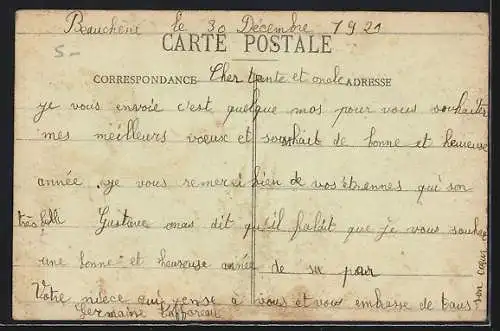 Beauchêne le 30 Décembre 1921
5-
CARTE POSTALE
CORRESPONDANCE ADRESSE
Cher tante et oncle
je vous envoie c'est quelque mos pour vous souhaiter
mes meilleurs voeux et souhait de bonne et heureuse
année. je vous remerci bien de vos étrennes qui son
très
Gustave mas dit qu'il falait que je vous souhai
une bonne et heureuse année de su pour
Votre nièce qui pense à vous et vous embrasse de tous
son coeur
Germaine